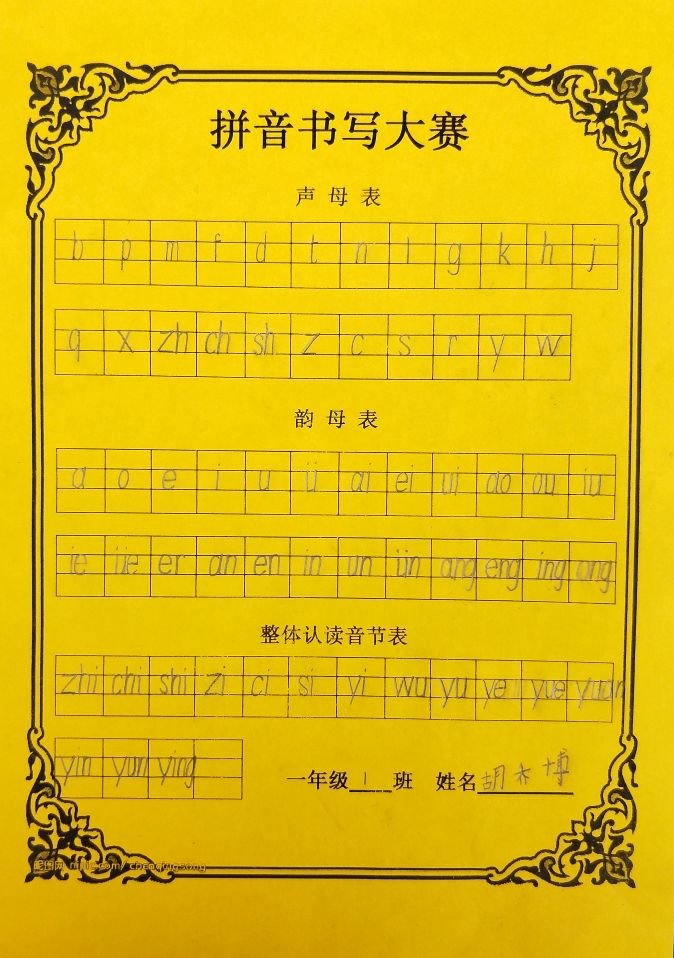 拼音书写大赛
声母表
b p m f d t n l g k h j
q x zh ch sh z c s r y w
韵母表
a o e i u ü ai ei ui ao ou iu
ie üe er an en in un ün ang eng ing ong
整体认读音节表
zhi chi shi zi ci si yi wu yu ye yue yuan
yin yun ying
一年级 1 班 姓名 胡 博
昵图网 nipic.com/